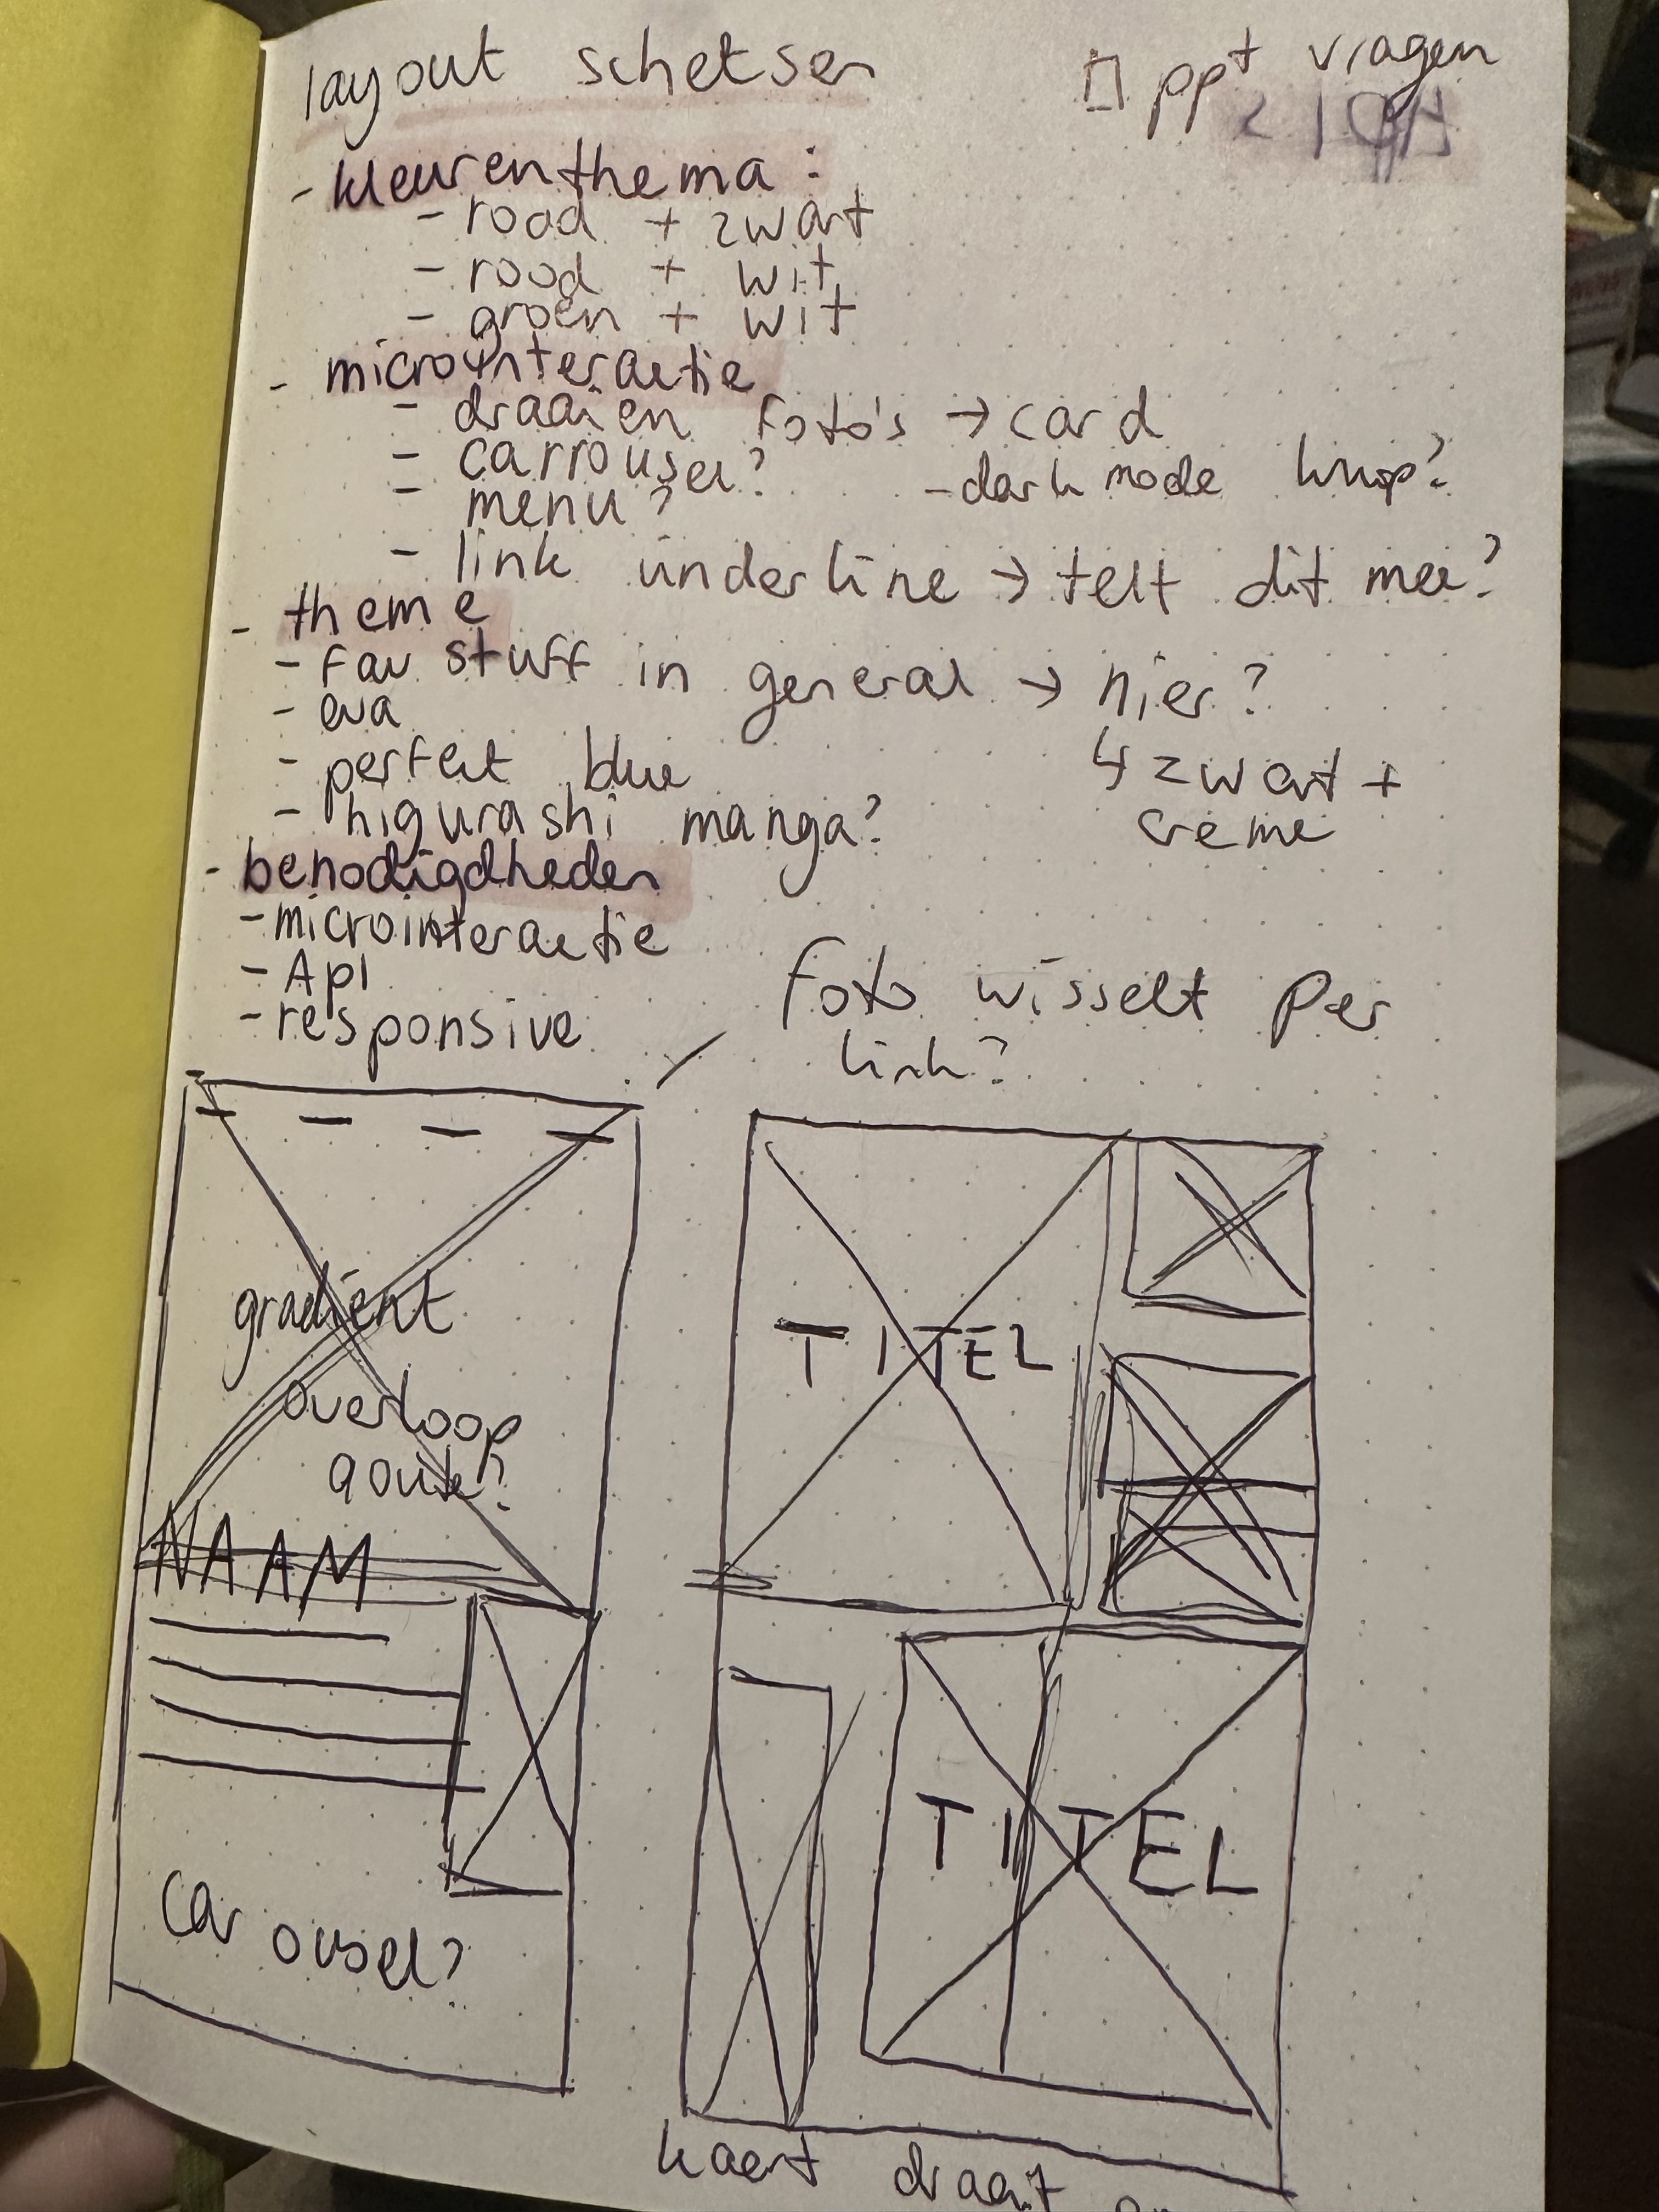 layout schetsen
□ ppt vragen
- kleurenthema:
- rood + zwart
- rood + wit
- groen + wit
- microinteractie
- draaien foto's → card
- carrousel?
- dark mode knop?
- menu?
- link underline → telt dit mee?
- theme
- fav stuff in general → nier?
↳ zwart +
creme
- eva
- perfect blue
- higurashi manga?
- benodigdheden
- microinteractie
- API
- responsive
foto wisselt per
link?
gradient
overloop
NAAM
carousel?
TITEL
TITEL
kaart draait